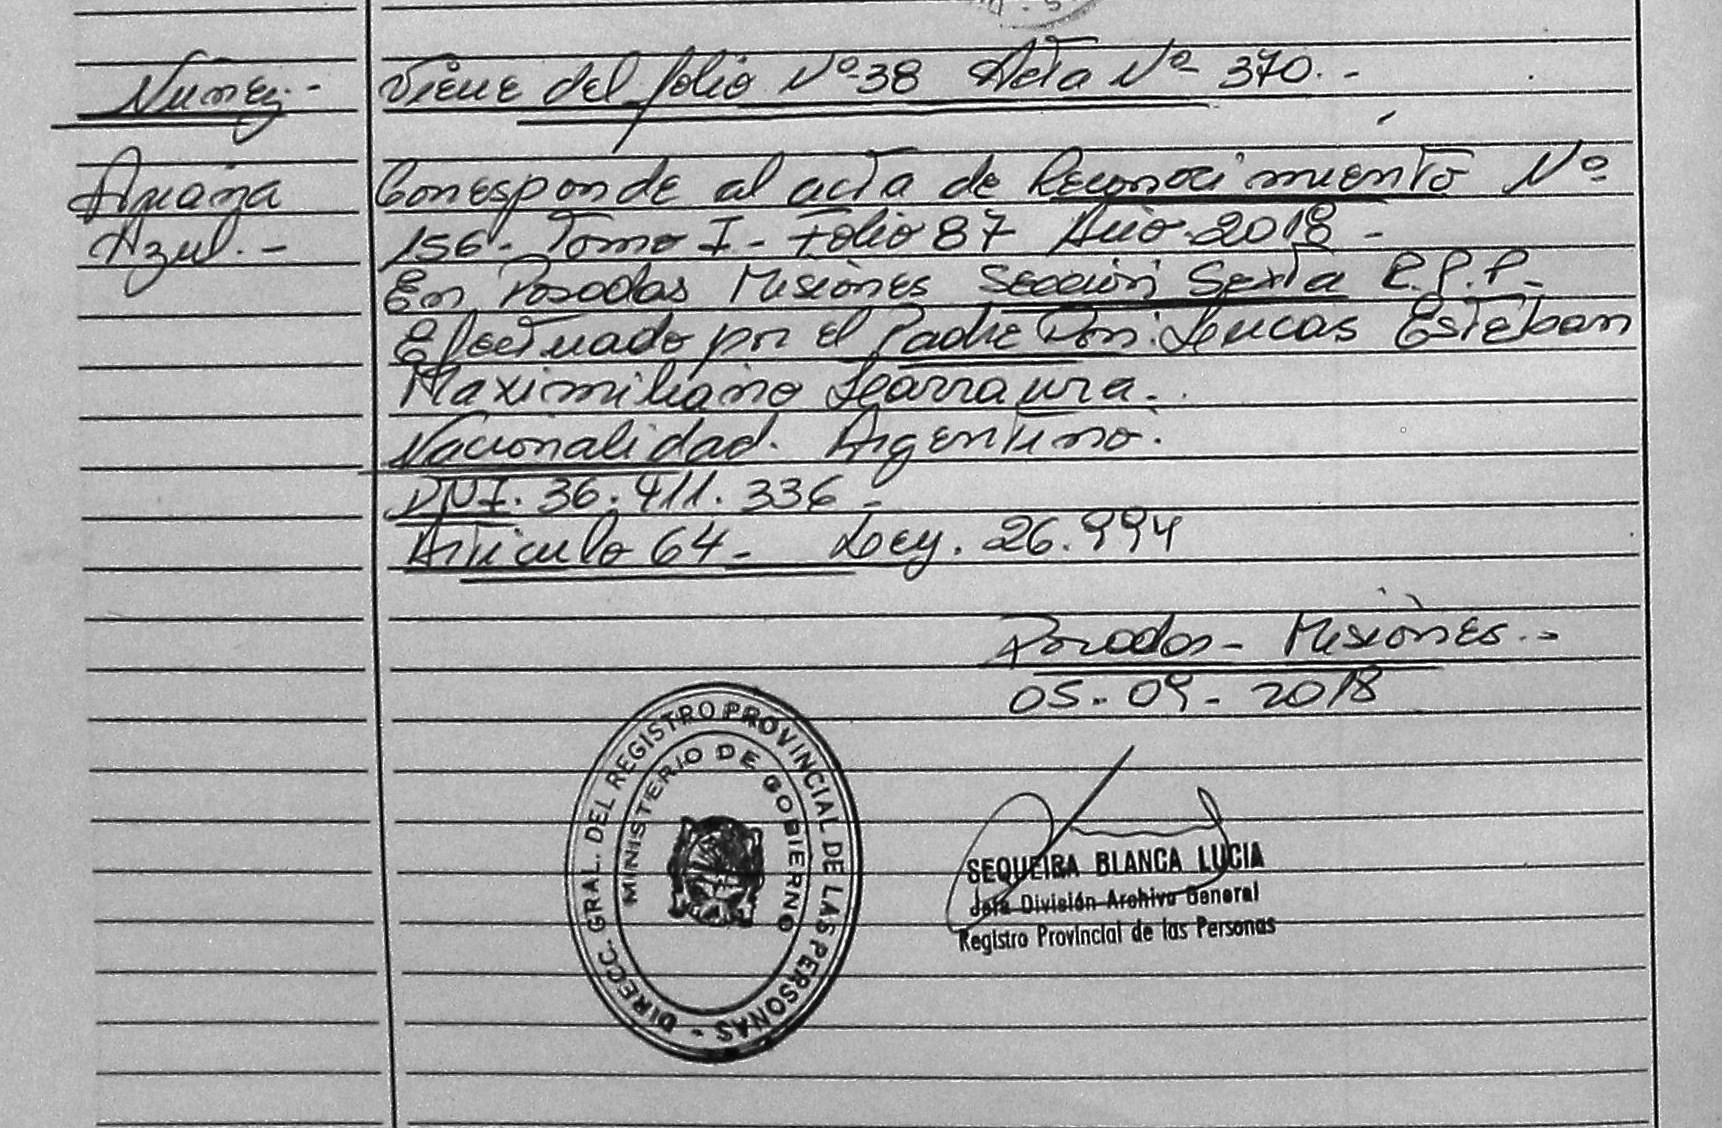 Nuñez.-
Amaira
Azul.-
Viene del folio Nº 38 Acta Nº 370.-
Corresponde al acta de Reconocimiento Nº
156- Tomo I- Folio 87 Año 2018-
En Posadas Misiones Sección Sexta R.P.P-
Efectuado por el Padre Don: Lucas Esteban
Maximiliano
Nacionalidad. Argentino.
DNI. 36.411.336-
Articulo 64- Ley. 26.994
Posadas- Misiones.-
05-09-2018
DIRECC. GRAL. DEL REGISTRO PROVINCIAL DE LAS PERSONAS -
MINISTERIO DE GOBIERNO
SEQUEIRA BLANCA LUCIA
Jefa División Archivo General
Registro Provincial de las Personas